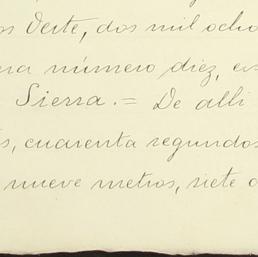 Oeste, dos mil ocho
número diez, en
Sierra. = De alli
cuarenta segundos
nueve metros, siete